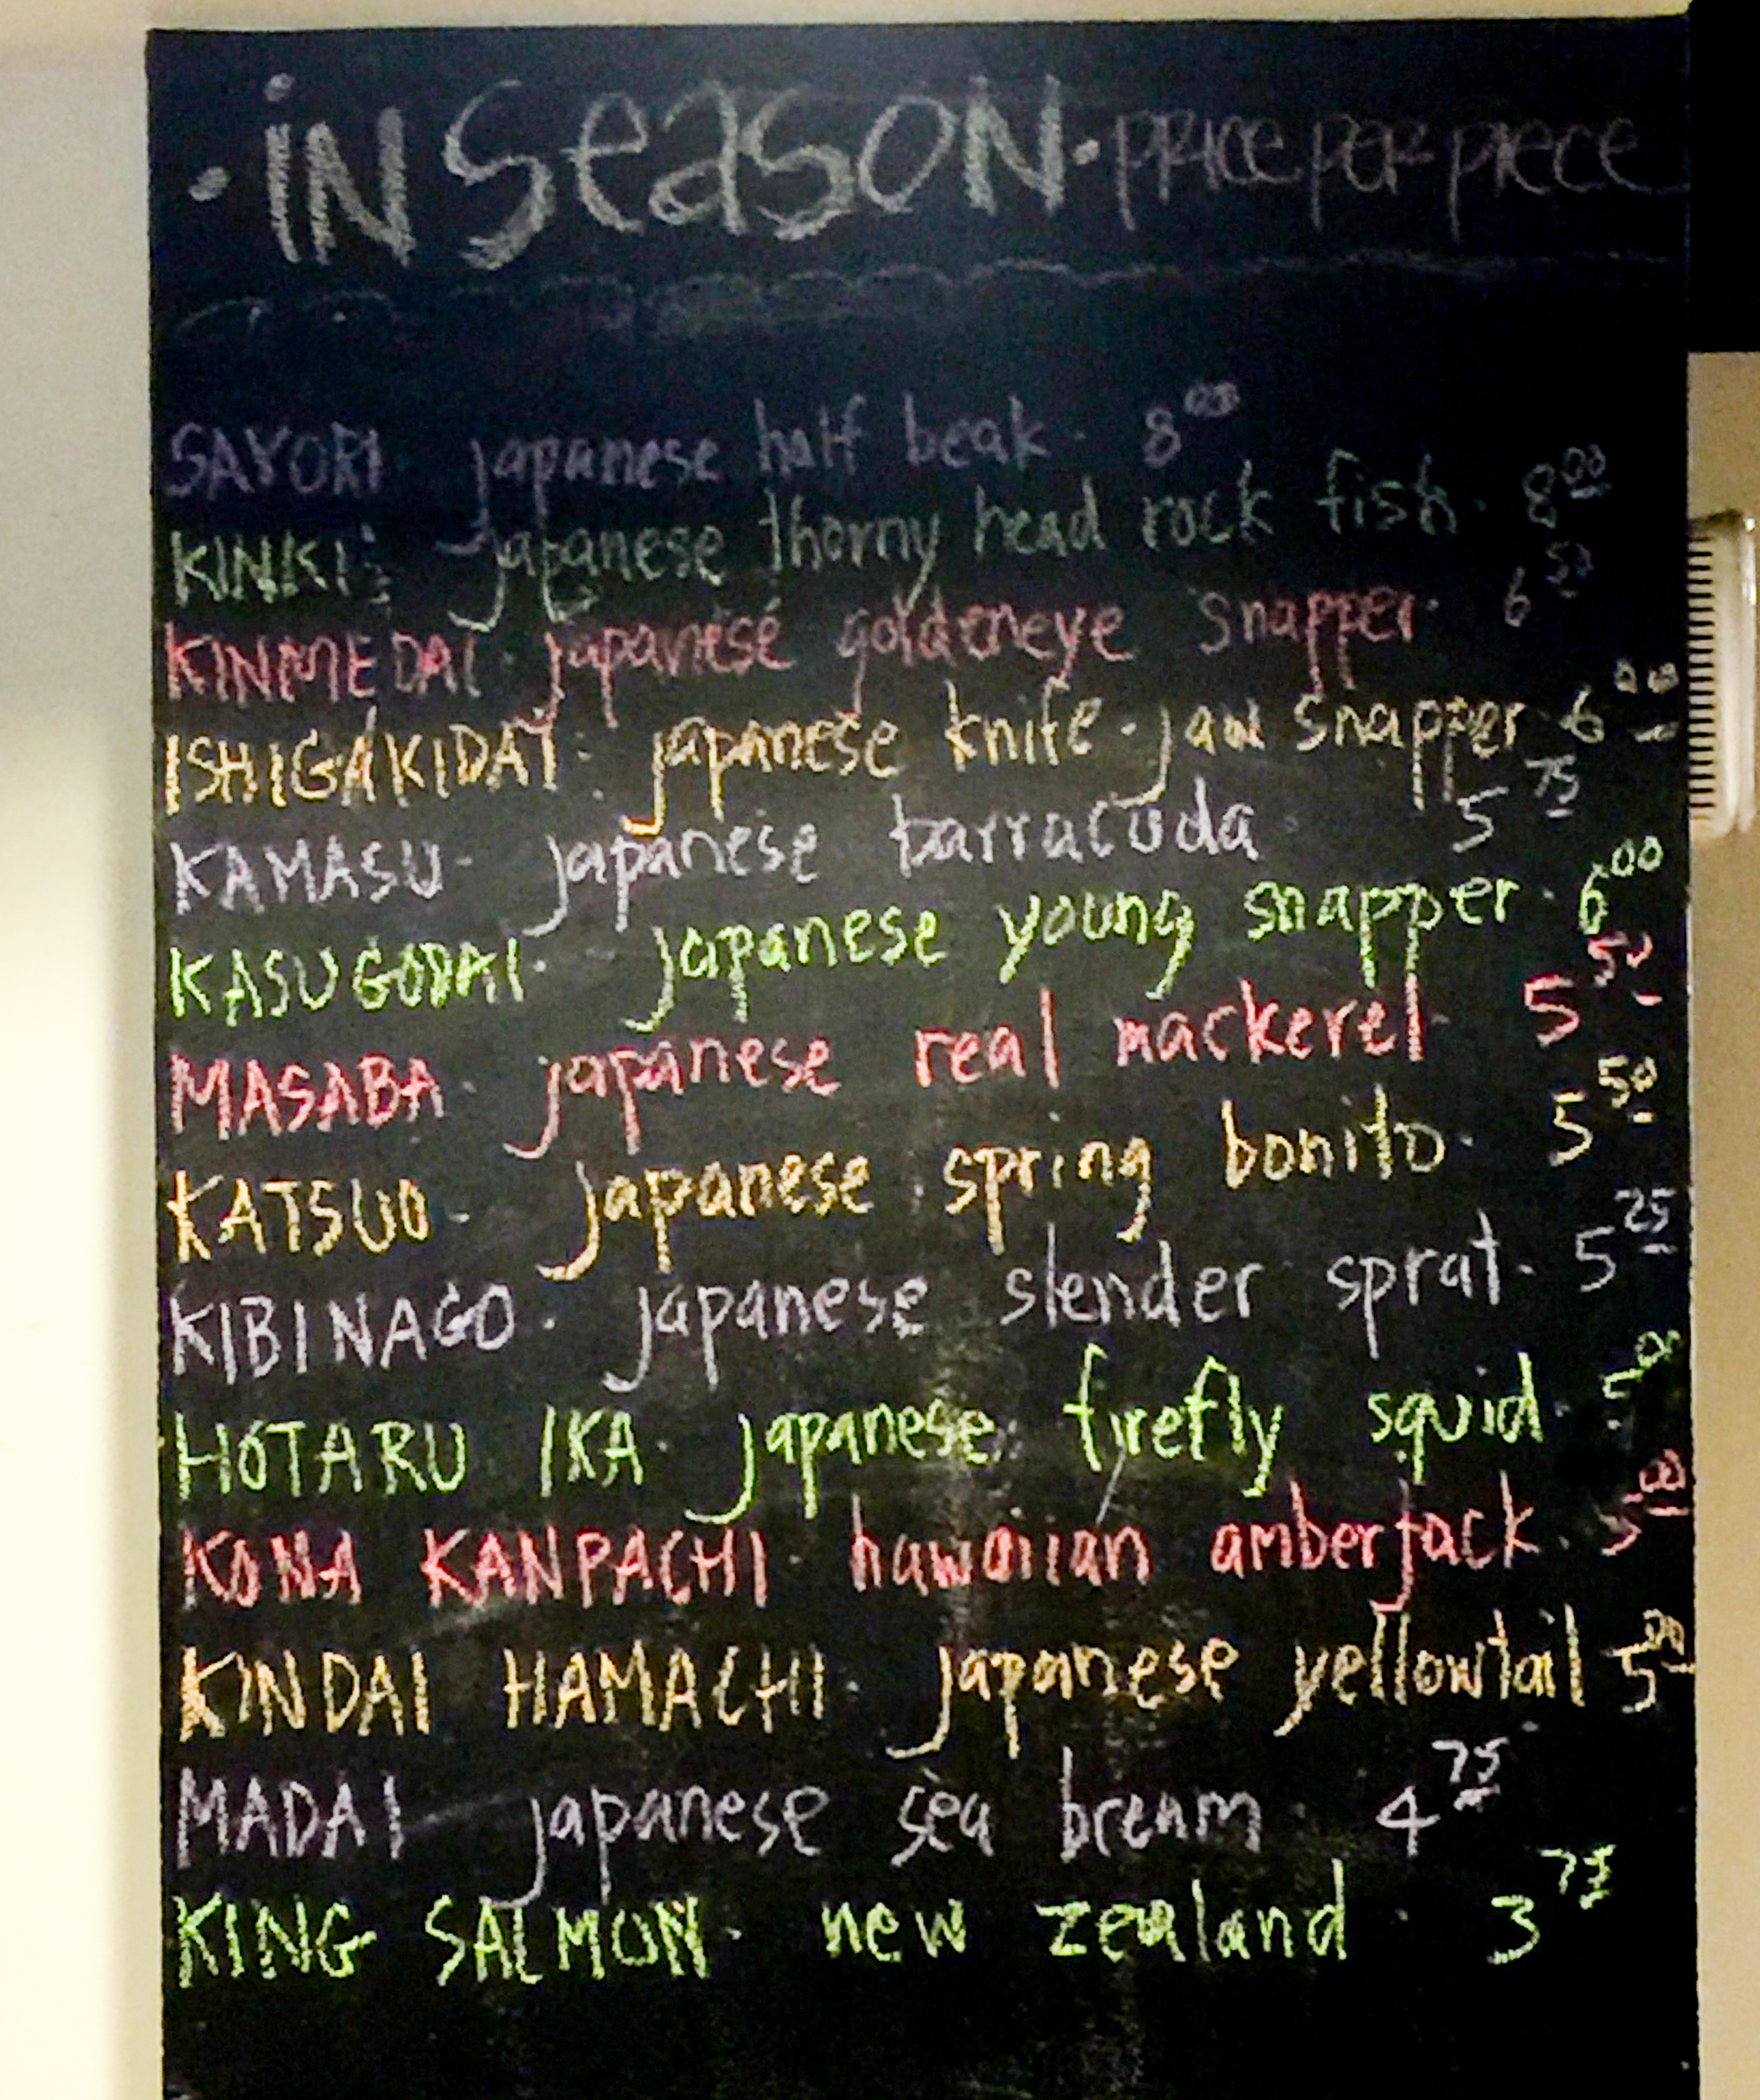 ·iN SeasoN· PRICE PER PIECE
SAYORI· japanese half beak· 8⁰⁰
KINKI: japanese thorny head rock fish· 8⁰⁰
KINMEDAI· japanese goldeneye snapper· 6⁵⁰
ISHIGAKIDAI: japanese knife-jaw snapper 6⁰⁰
KAMASU- japanese barracuda 5⁷⁵
KASUGODAI· japanese young snapper· 6⁰⁰
MASABA· japanese real mackerel· 5⁵⁰
KATSUO- japanese spring bonito· 5⁵⁰
KIBINAGO· japanese slender sprat· 5²⁵
HOTARU IKA· japanese firefly squid· 5⁰⁰
KONA KANPACHI· hawaiian amberjack· 5⁰⁰
KINDAI HAMACHI· japanese yellowtail 5⁰⁰
MADAI japanese sea bream· 4⁷⁵
KING SALMON· new zealand· 3⁷⁵